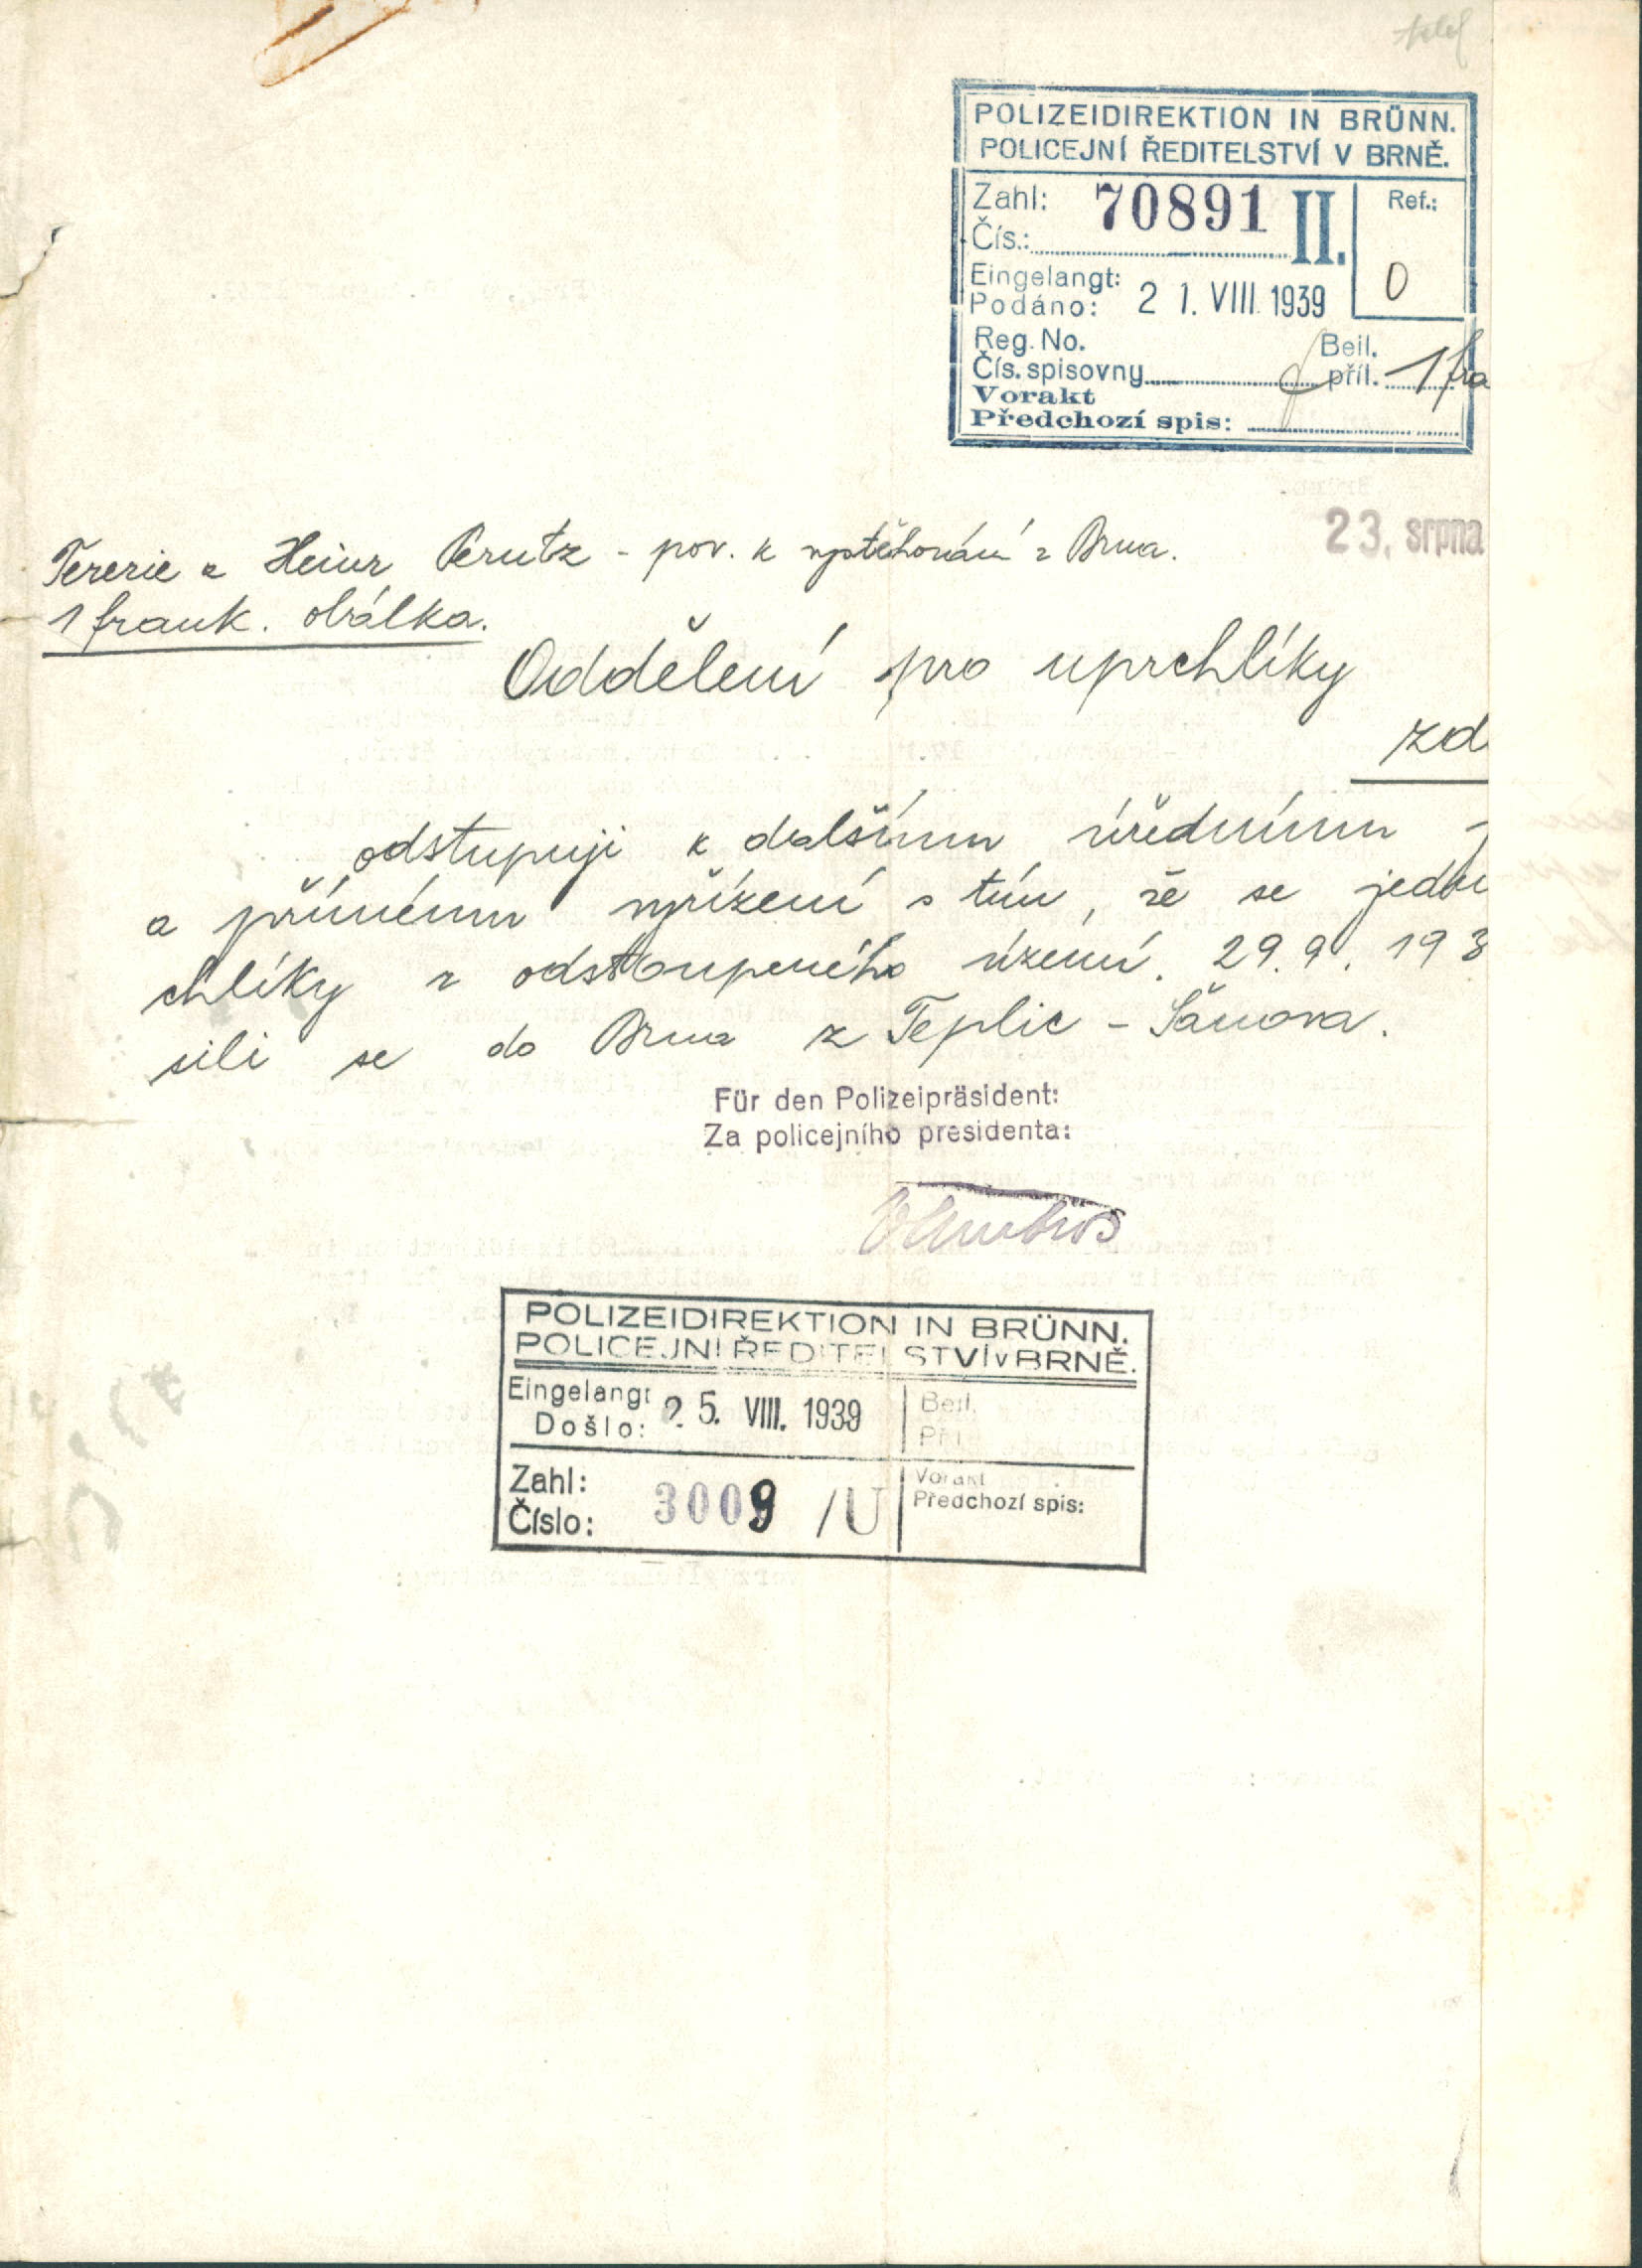 POLIZEIDIREKTION IN BRÜNN.
POLICEJNÍ ŘEDITELSTVÍ V BRNĚ.
Zahl: 70891 II. Ref.:
Čís.:
0
Eingelangt:
Podáno: 21. VIII. 1939
Reg. No. Beil.
Čís. spisovny příl. 1 fra
Vorakt
Předchozí spis:
23. srpna
Terezie a Heinr Perutz - pov. k vystěhování z Brna.
1 frank. obálka.
Oddělení pro uprchlíky
zd
odstupuji k dalšímu úřednímu
a přímému vyřízení s tím, že se jedn
chlíky z odstoupeného území. 29.9. 193
sili se do Brna z Teplic - Šanova.
Für den Polizeipräsident:
Za policejního presidenta:
POLIZEIDIREKTION IN BRÜNN.
POLICEJNÍ ŘEDITELSTVÍ v BRNĚ.
Eingelangt Beil.
Došlo: 25. VIII. 1939 Příl.
Zahl: Vorakt
Číslo: 3009 /U Předchozí spis: